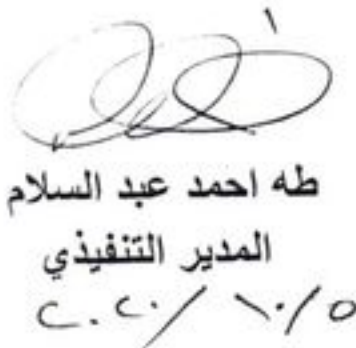 طه احمد عبد السلام
المدير التنفيذي
٢٠٢٠/١٠/٥